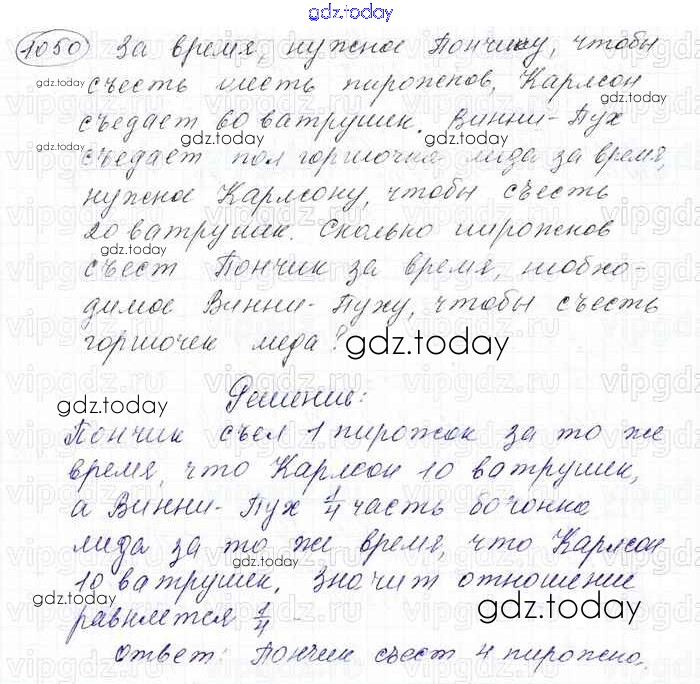 gdz.today
1050 За время, нужное Пончику, чтобы
gdz.today
съесть шесть пирожков, Карлсон
gdz.today
съедает 60 ватрушек. Винни-Пух
gdz.today
съедает пол горшочка меда за время,
нужное Карлсону, чтобы съесть
20 ватрушек. Сколько пирожков
gdz.today
съест Пончик за время, необхо-
димое Винни-Пуху, чтобы съесть
горшочек меда?
gdz.today
Решение:
gdz.today
Пончик съел 1 пирожок за то же
время, что Карлсон 10 ватрушек,
а Винни-Пух 1/4 часть бочонка
меда за то же время, что Карлсон
10 ватрушек, значит отношение
gdz.today
gdz.today
равняется 1/4
Ответ: Пончик съест 4 пирожка.